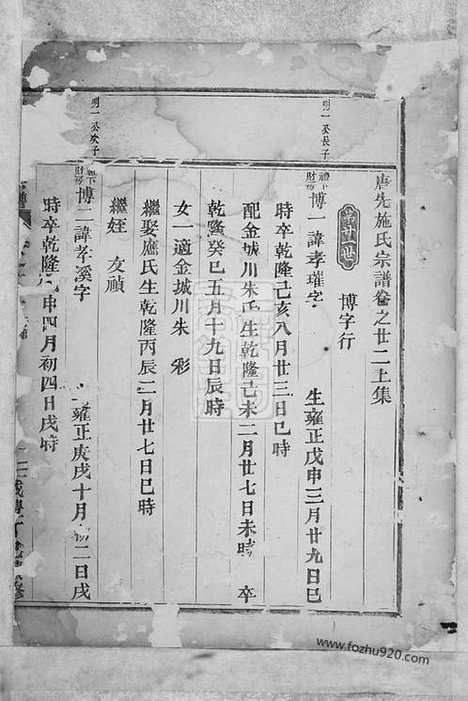 唐先施氏宗譜卷之廿二上集
世 博字行
明一公長子
禮下財房 博一諱孝瓘字 生雍正戊申三月廿九日巳
時卒乾隆己亥八月廿三日巳時
配金城川朱氏生乾隆己未二月廿七日未時 卒
乾隆癸巳五月十九日辰時
女一適金城川朱 彩
繼娶應氏生乾隆丙辰二月廿七日巳時
繼姪 友禎
明一公次子
禮下財房 博二諱孝溪字 雍正庚戌十月初二日戌
時卒乾隆 申四月初四日戌時
www.fozhu920.com